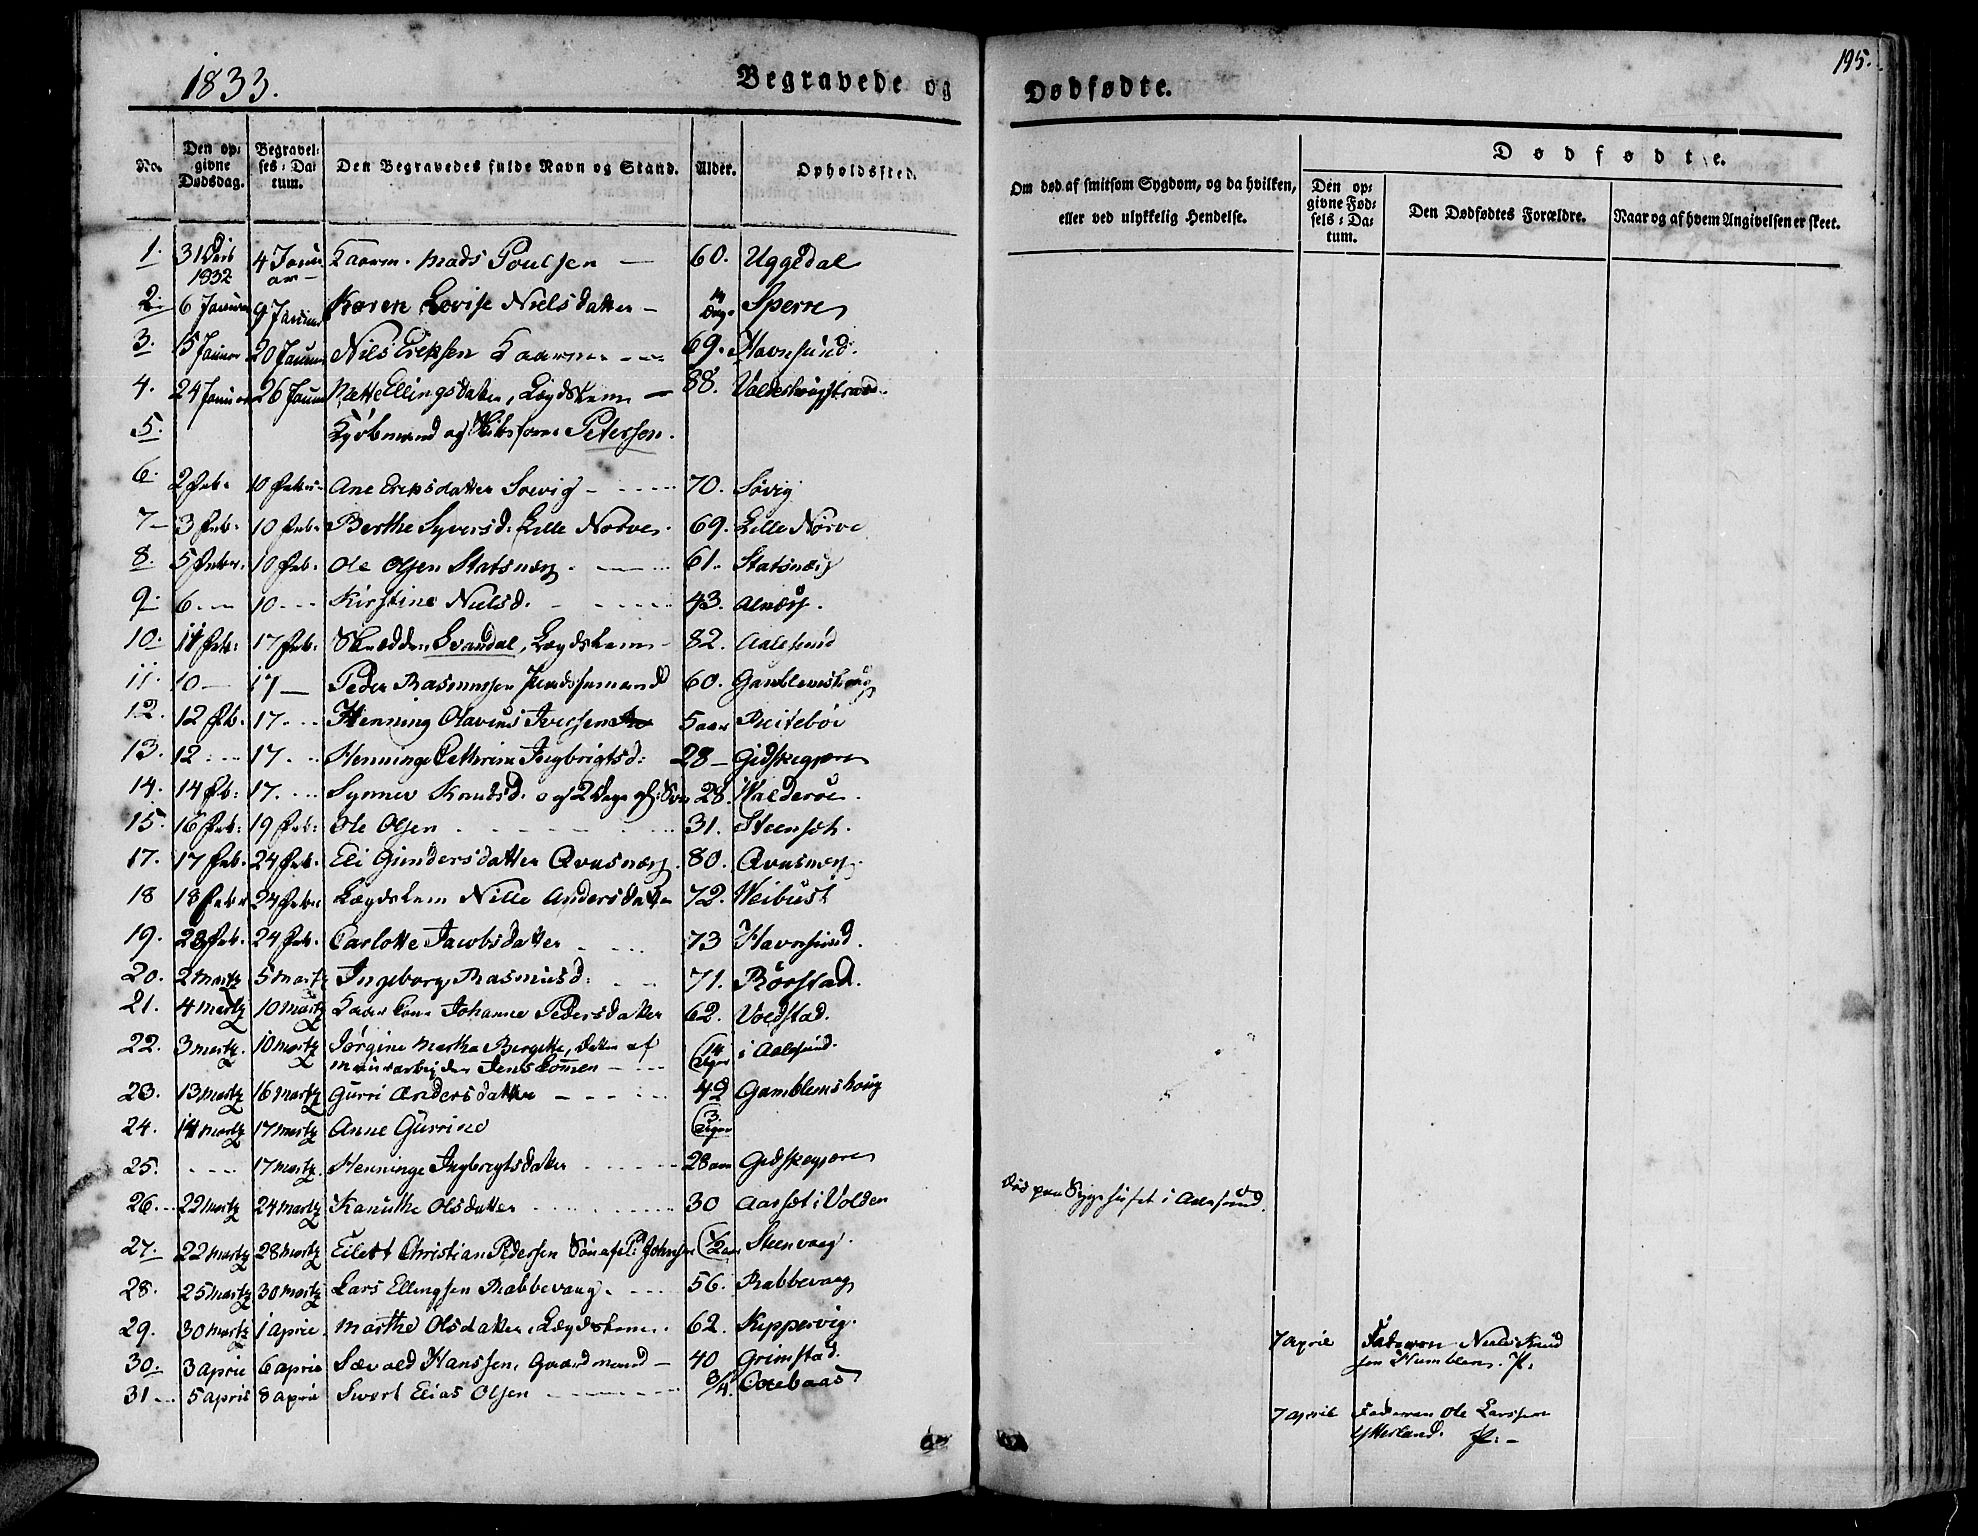 1833.
Begravede og
Dødfødte.
195.
No.
Den op-
givne
Dødsdag.
Begravel-
ses-Da-
tum.
Den Begravedes fulde Navn og Stand.
Alder.
Opholdssted.
Om død af smitsom Sygdom, og da hvilken,
eller ved ulykkelig Hendelse.
Dødfødte.
Den op-
givne Fød-
sels-Da-
tum.
Den Dødfødtes Forældre.
Naar og af hvem Angivelsen er skeet.
1. 31 1832 4 Januar Mads Poulsen — 60. Uggedal
2. 6 Januar 9 Januar Karen Lovise Nielsdatter — 14 Dage Sperre
3. 15 Januar 20 Januar Nils Eriksen 69. Havnsund.
4. 24 Januar 26 Januar Ellingsdatter, Lægdslem — 88.
5. Kjøbmand og Petersen.
6. 2 Feb. 10 Febr. Ane Eriksdatter Soevig 70. Søvig
7 3 Feb. 10 Feb. Berthe Syversd. Lille Nørve. 69. Lille Nørve
8. 5 Febr. 10 Feb. Ole Olsen Statsnæs 61. Statsnæs
9. 6 10 Kirstine Nielsd. 43. Alnæs.
10. 11 Feb. 17 Feb. Svandal, Lægdslem 82. Aalesund
11. 10 17 Peder Rasmussen 60. Gamblemshaug
12. 12 Fb. 17. Henning Olavius Iversen 5 aar Reitebøe
13. 12 17. Henninge Cathrine Ingbrigtsd: 28 Gidskegjære
14. 14 Fb. 17. Synnev Knudsd. og 2 Dage gl: Søn 28. Walderøe.
15. 16 Feb. 19 Feb. Ole Olsen 31. Steenset.
17. 17 Feb. 24 Feb. Eli Gundersdatter Qvasnæs. 80. Qvasnæs.
18 18 Febr 24 Febr Lægdslem Nille Andersdatter 72. Weibust
19. 23 Feb. 24 Feb. Carlotte Jacobsdatter 73 Havnsund.
20. 2 Martz 5 Martz Ingeborg Rasmusd: 71. Rørstad.
21. 4 Martz 10 Martz Johanne Pedersdatter 62. Voldstad.
22. 3 Martz. 10 Martz Jørgine Martha Bergitte, Datter af 14 Dage i Aalesund.
Muurarbejder Jens
23. 13 Martz 16 Martz Gurri Andersdatter 42 Gamblemshoug
24. 14 Martz 17 Martz Anne Gurrine 3 Dage
25. 17 Martz. Henninge Ingbrigtsdatter 28 aar Gidskegjære
26. 22 Martz 24 Martz Kanuthe Olsdatter 30 Aarset i Volden
Død paa Sygehuset i Aalesund.
27. 22 Martz 28 Martz Eilert Christian Pedersen Søn af P. Johnsen 1/2 aar Steenvaag.
28. 25 Martz 30 Martz Lars Ellingsen Rabbevaag. 56. Rabbevaag
29. 30 Martz 1 April. Marthe Olsdatter, Lægdslem. 62. Kippervig.
30. 3 April 6 April Sævald Hanssen, Gaardmand — 40 Grimstad.
31 5 April 8 April Swert Elias Olsen 3/4.
7 April Faderen Niels Knud
sen Humblen.
7 April Faderen Ole Larssen
Ytterland.